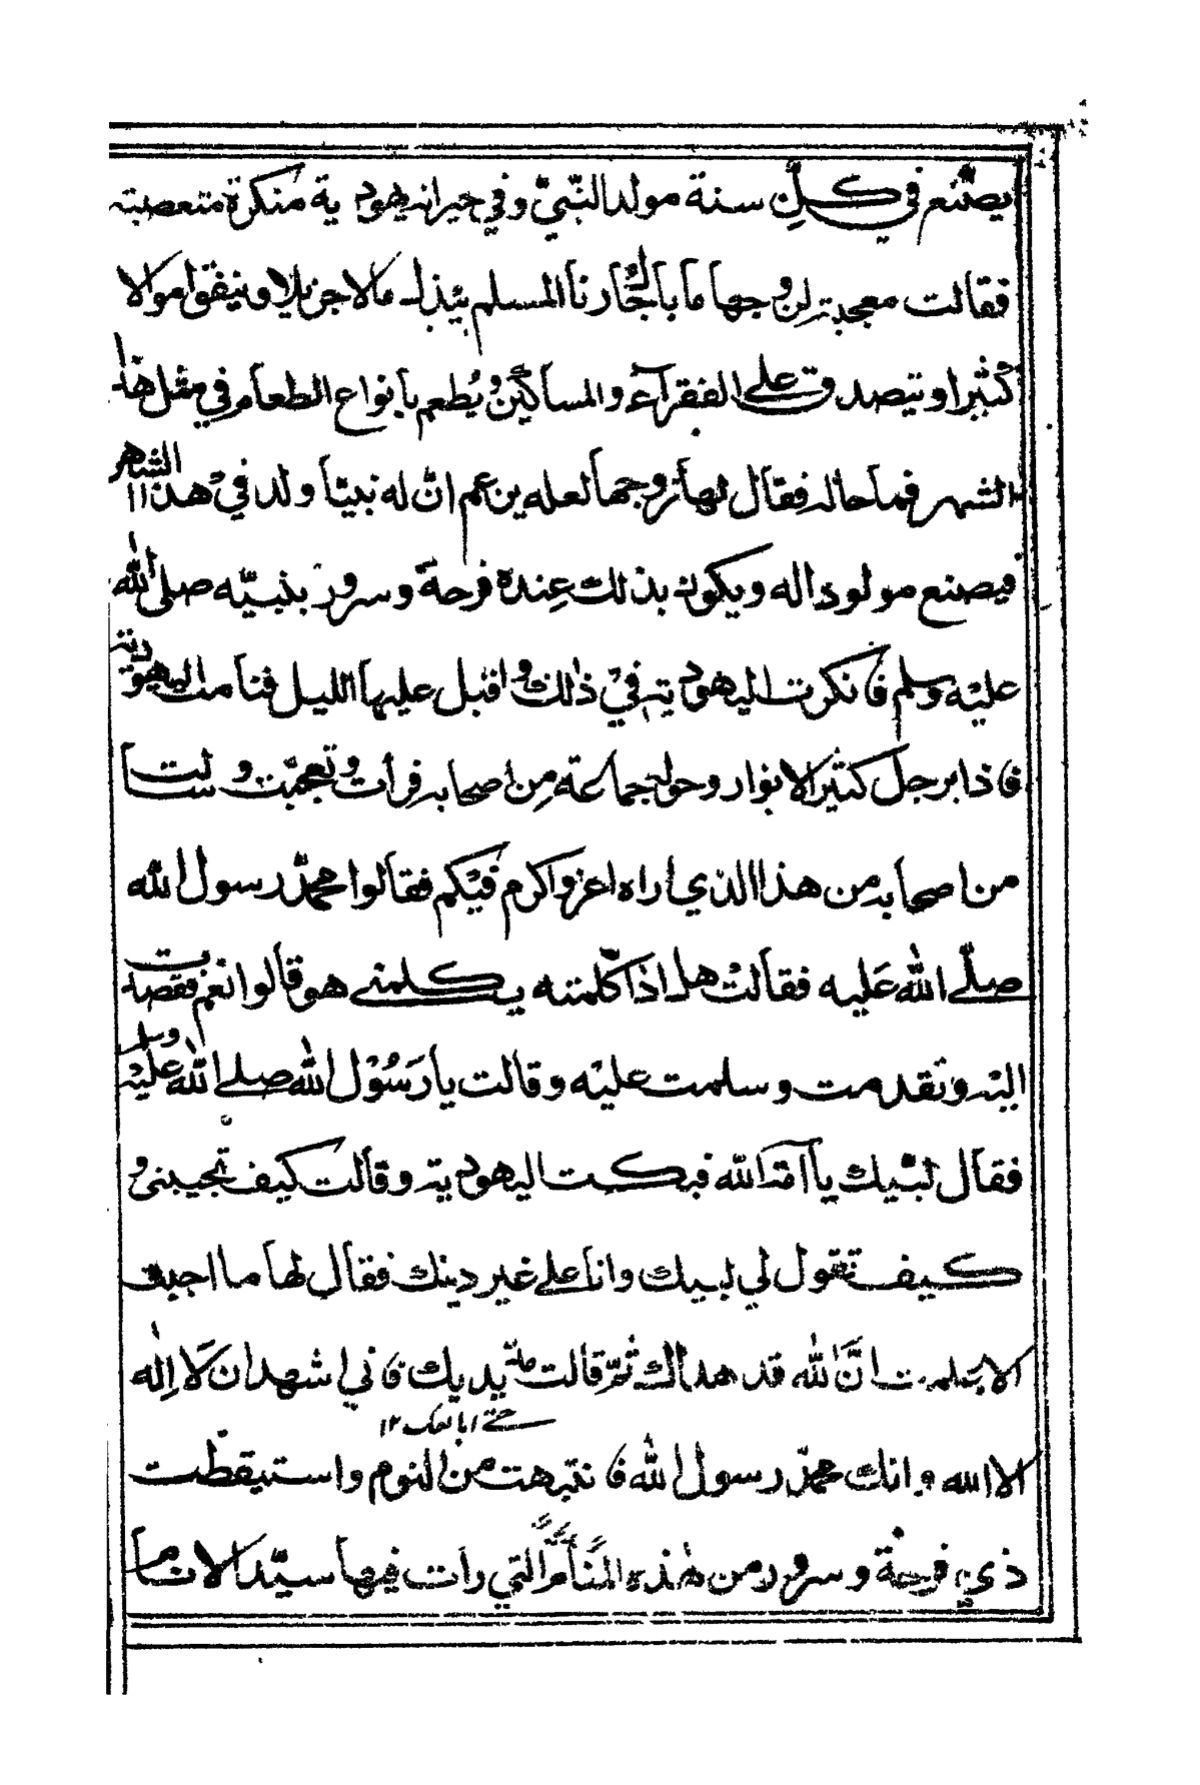 يصنع في كلِّ سنة مولد النّبيّ وفي جيرانه يهودية منكرة متعصبة
فقالت معجبة لزوجها ما بال جارنا المسلم يبذل مالا جزيلا وينفق اموالا
كثيرا ويتصدق على الفقرآء والمساكين ويُطعم بانواع الطعام في مثل هذا
الشهر فما حاله فقال لها زوجها لعله يزعم انّ له نبيّا ولد في هذا الشهر
فيصنع مولودا له ويكون بذلك عِنده فرحة وسرور بنبيّه صلى الله
عليْه وسلم فانكرت اليهودية فيْ ذٰلك واقبل عليها الليل فنامت اليهودية
فاذا برجل كثير الانوار وحوله جماعة مِن اصحابه فرأت وتعجّبت وسالت
من اصحابه من هذا الذي اراه اعز واكرم فيْكم فقالوا محمّد رسول الله
صلّى الله عَليه فقالتْ هل اذا كلّمته يكلمني هو قالوا نعم فقصدت
اليْه وتقدمت وسلمت عليْه وقالت يا رَسُوْل الله صلى الله عليْه وسلم
فقال لبّيك يا أمة الله فبكت اليهودية وقالت كيف تجيبني و
كيف تقول لي لبيك وانا على غير دينك فقال لها ما اجبتك
الا علمت انَّ الله قد هداك ثمّ قالت مدّ يديك فاني اشهد ان لا اِلٰه
حتى ابايعك ١٢
الا الله وانك محمّد رسول الله فانتبهت من النوم واستيقظت
ذي فرحة وسرور من هٰذه المنام الّتي رأت فيها سيّد الانام